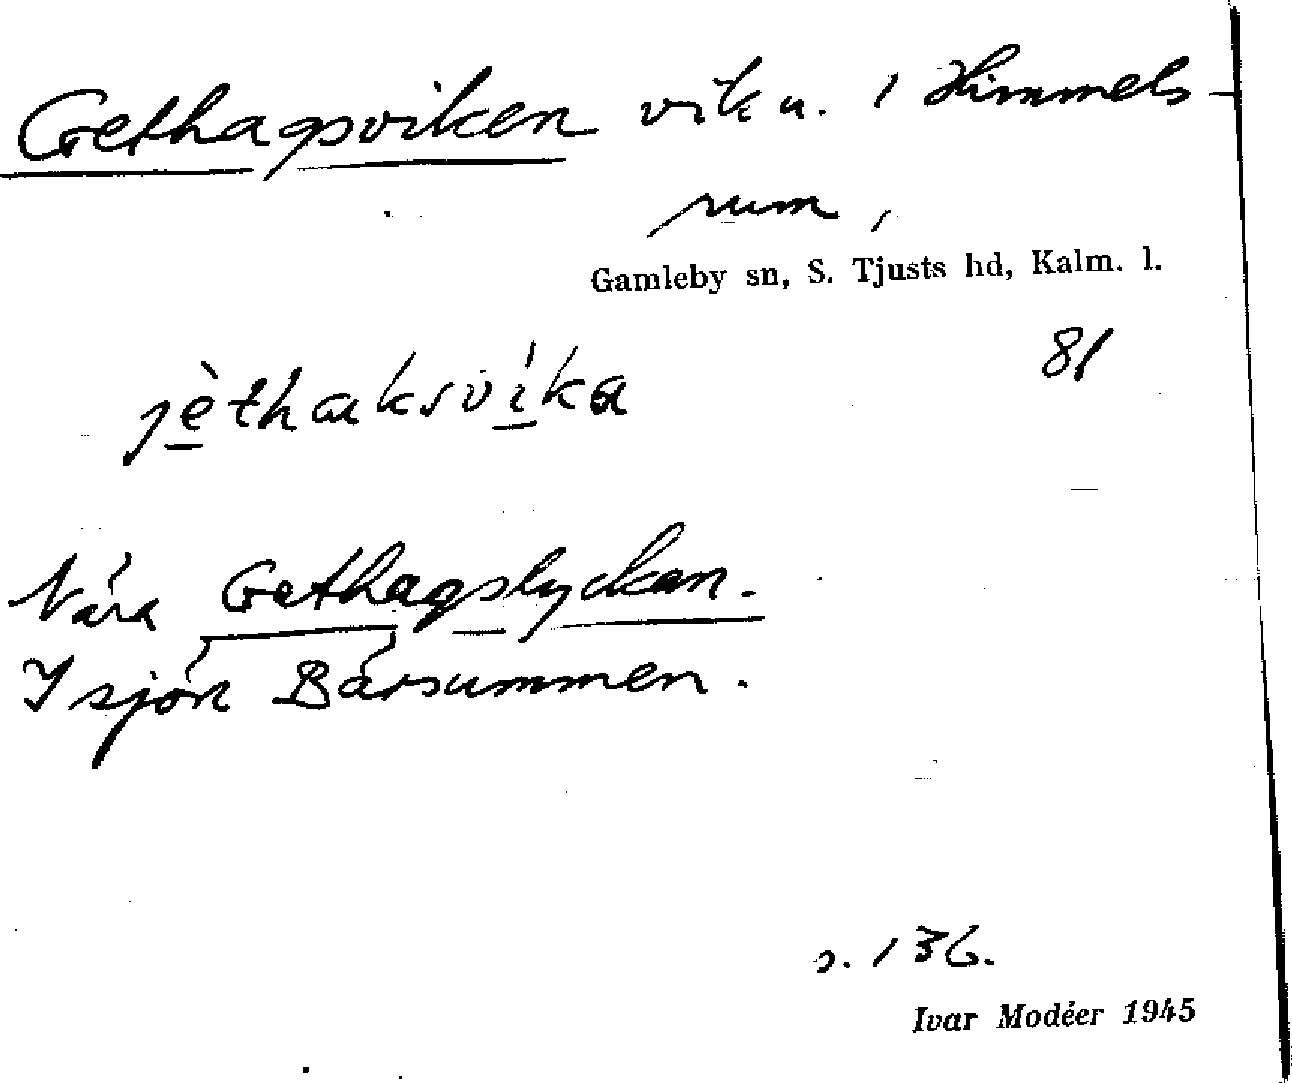 Gethagsviken vik u. 1 Himmels-
rum,
Gamleby sn, S. Tjusts hd, Kalm. l.
81
jèthaksvika
Nära Gethagslyckan.
I sjön Bårsummen.
s. 136.
Ivar Modéer 1945